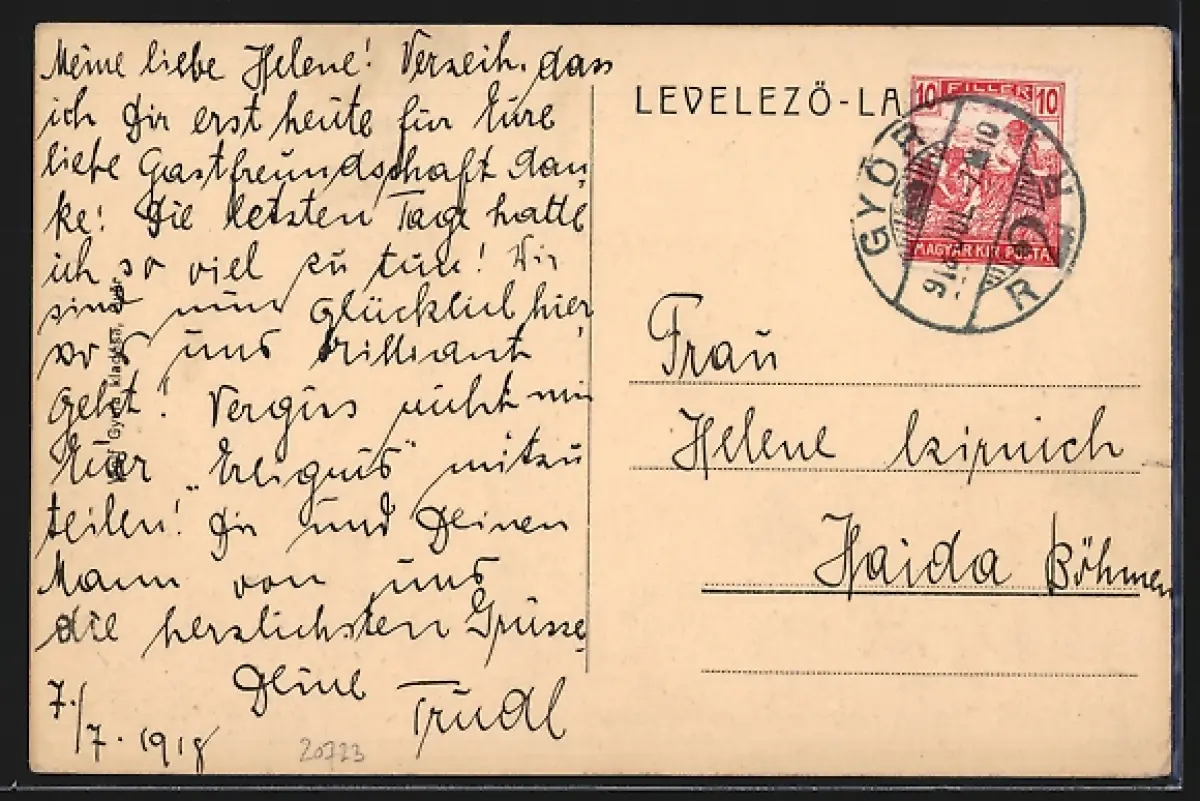 Meine liebe Helene! Verzeih, dass
ich Dir erst heute für Eure
liebe Gastfreundschaft dan-
ke! Die letzten Tage hatte
ich so viel zu tun! Wir
sind nun glücklich hier,
wo es uns brilliant
geht! Vergiss nicht mir
Euer „Ereignis" mitzu
teilen! Dir und Deinen
Mann von uns
die herzlichsten Grüsse
Deine Trudl
7./7. 1918
20723
LEVELEZŐ-LA
10 FILLER 10
MAGYAR KIR. POSTA
GYŐR
918 JUL. -7
Frau
Helene
Haida Böhmen